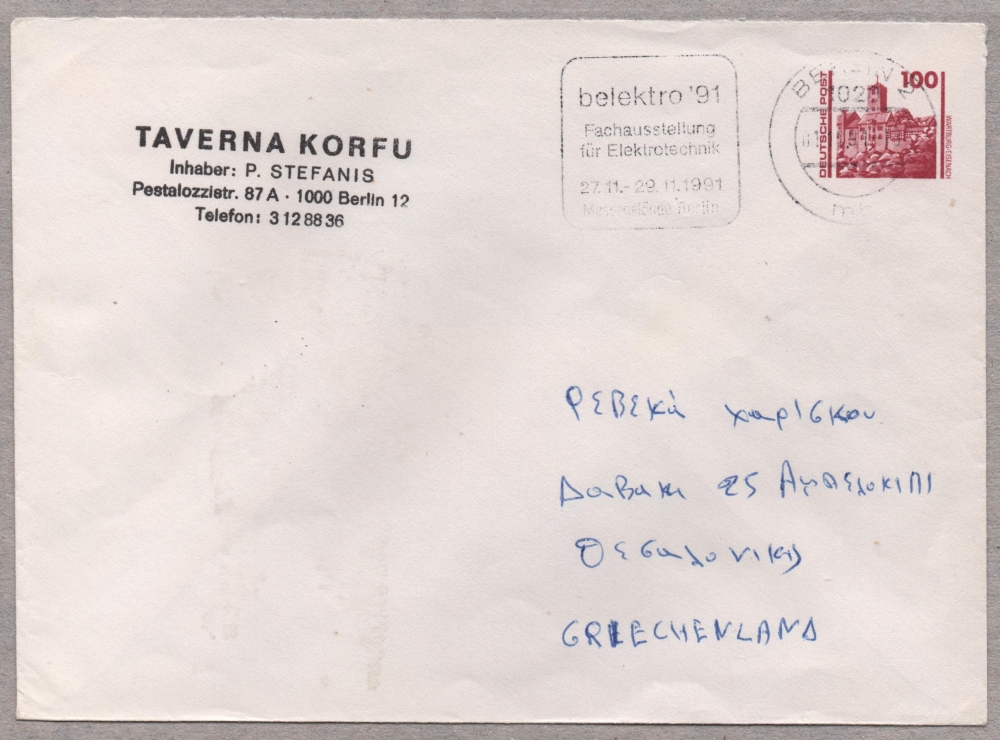 TAVERNA KORFU
Inhaber: P. STEFANIS
Pestalozzistr. 87 A · 1000 Berlin 12
Telefon: 3 12 88 36
belektro '91
Fachausstellung
für Elektrotechnik
27.11.- 29.11.1991
Messegelände Berlin
BERLIN
100
DEUTSCHE POST
WARTBURG · EISENACH
Ρεβεκά χαρισκου
Δαβακι 25 Αμπελοκιπι
Θεσαλονικις
GRIECHENLAND